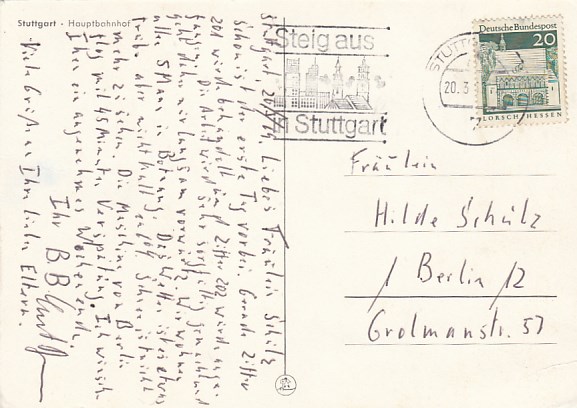 Stuttgart - Hauptbahnhof
Stuttgart, 20.3.69. Liebes Fräulein Schülz
Schon ist der erste Tag vorbei. Gerade Zitter
201 wurde behandelt und Zitter 202 wurde ange-
fangen. Die Arbeit wird sehr sorgfältig gemacht und
geht daher nur langsam vorwärts. Wir wohnen
alle 5 Mann in Botnang. Das Wetter ist etwas
trübe aber nicht kalt Schnee ist nicht
mehr zu sehen. Die Maschine von Berlin
flog mit 45 Minuten Verspätung. Ich wünsche
Ihnen ein angenehmes Wochenende.
Ihr B.B.
Viele Grüße an Ihre lieben Eltern.
Steig aus
in Stuttgart
STUTTG
20.3
Deutsche Bundespost
20
LORSCH/HESSEN
Fräulein
Hilde Schülz
1 Berlin 12
Grolmanstr. 57